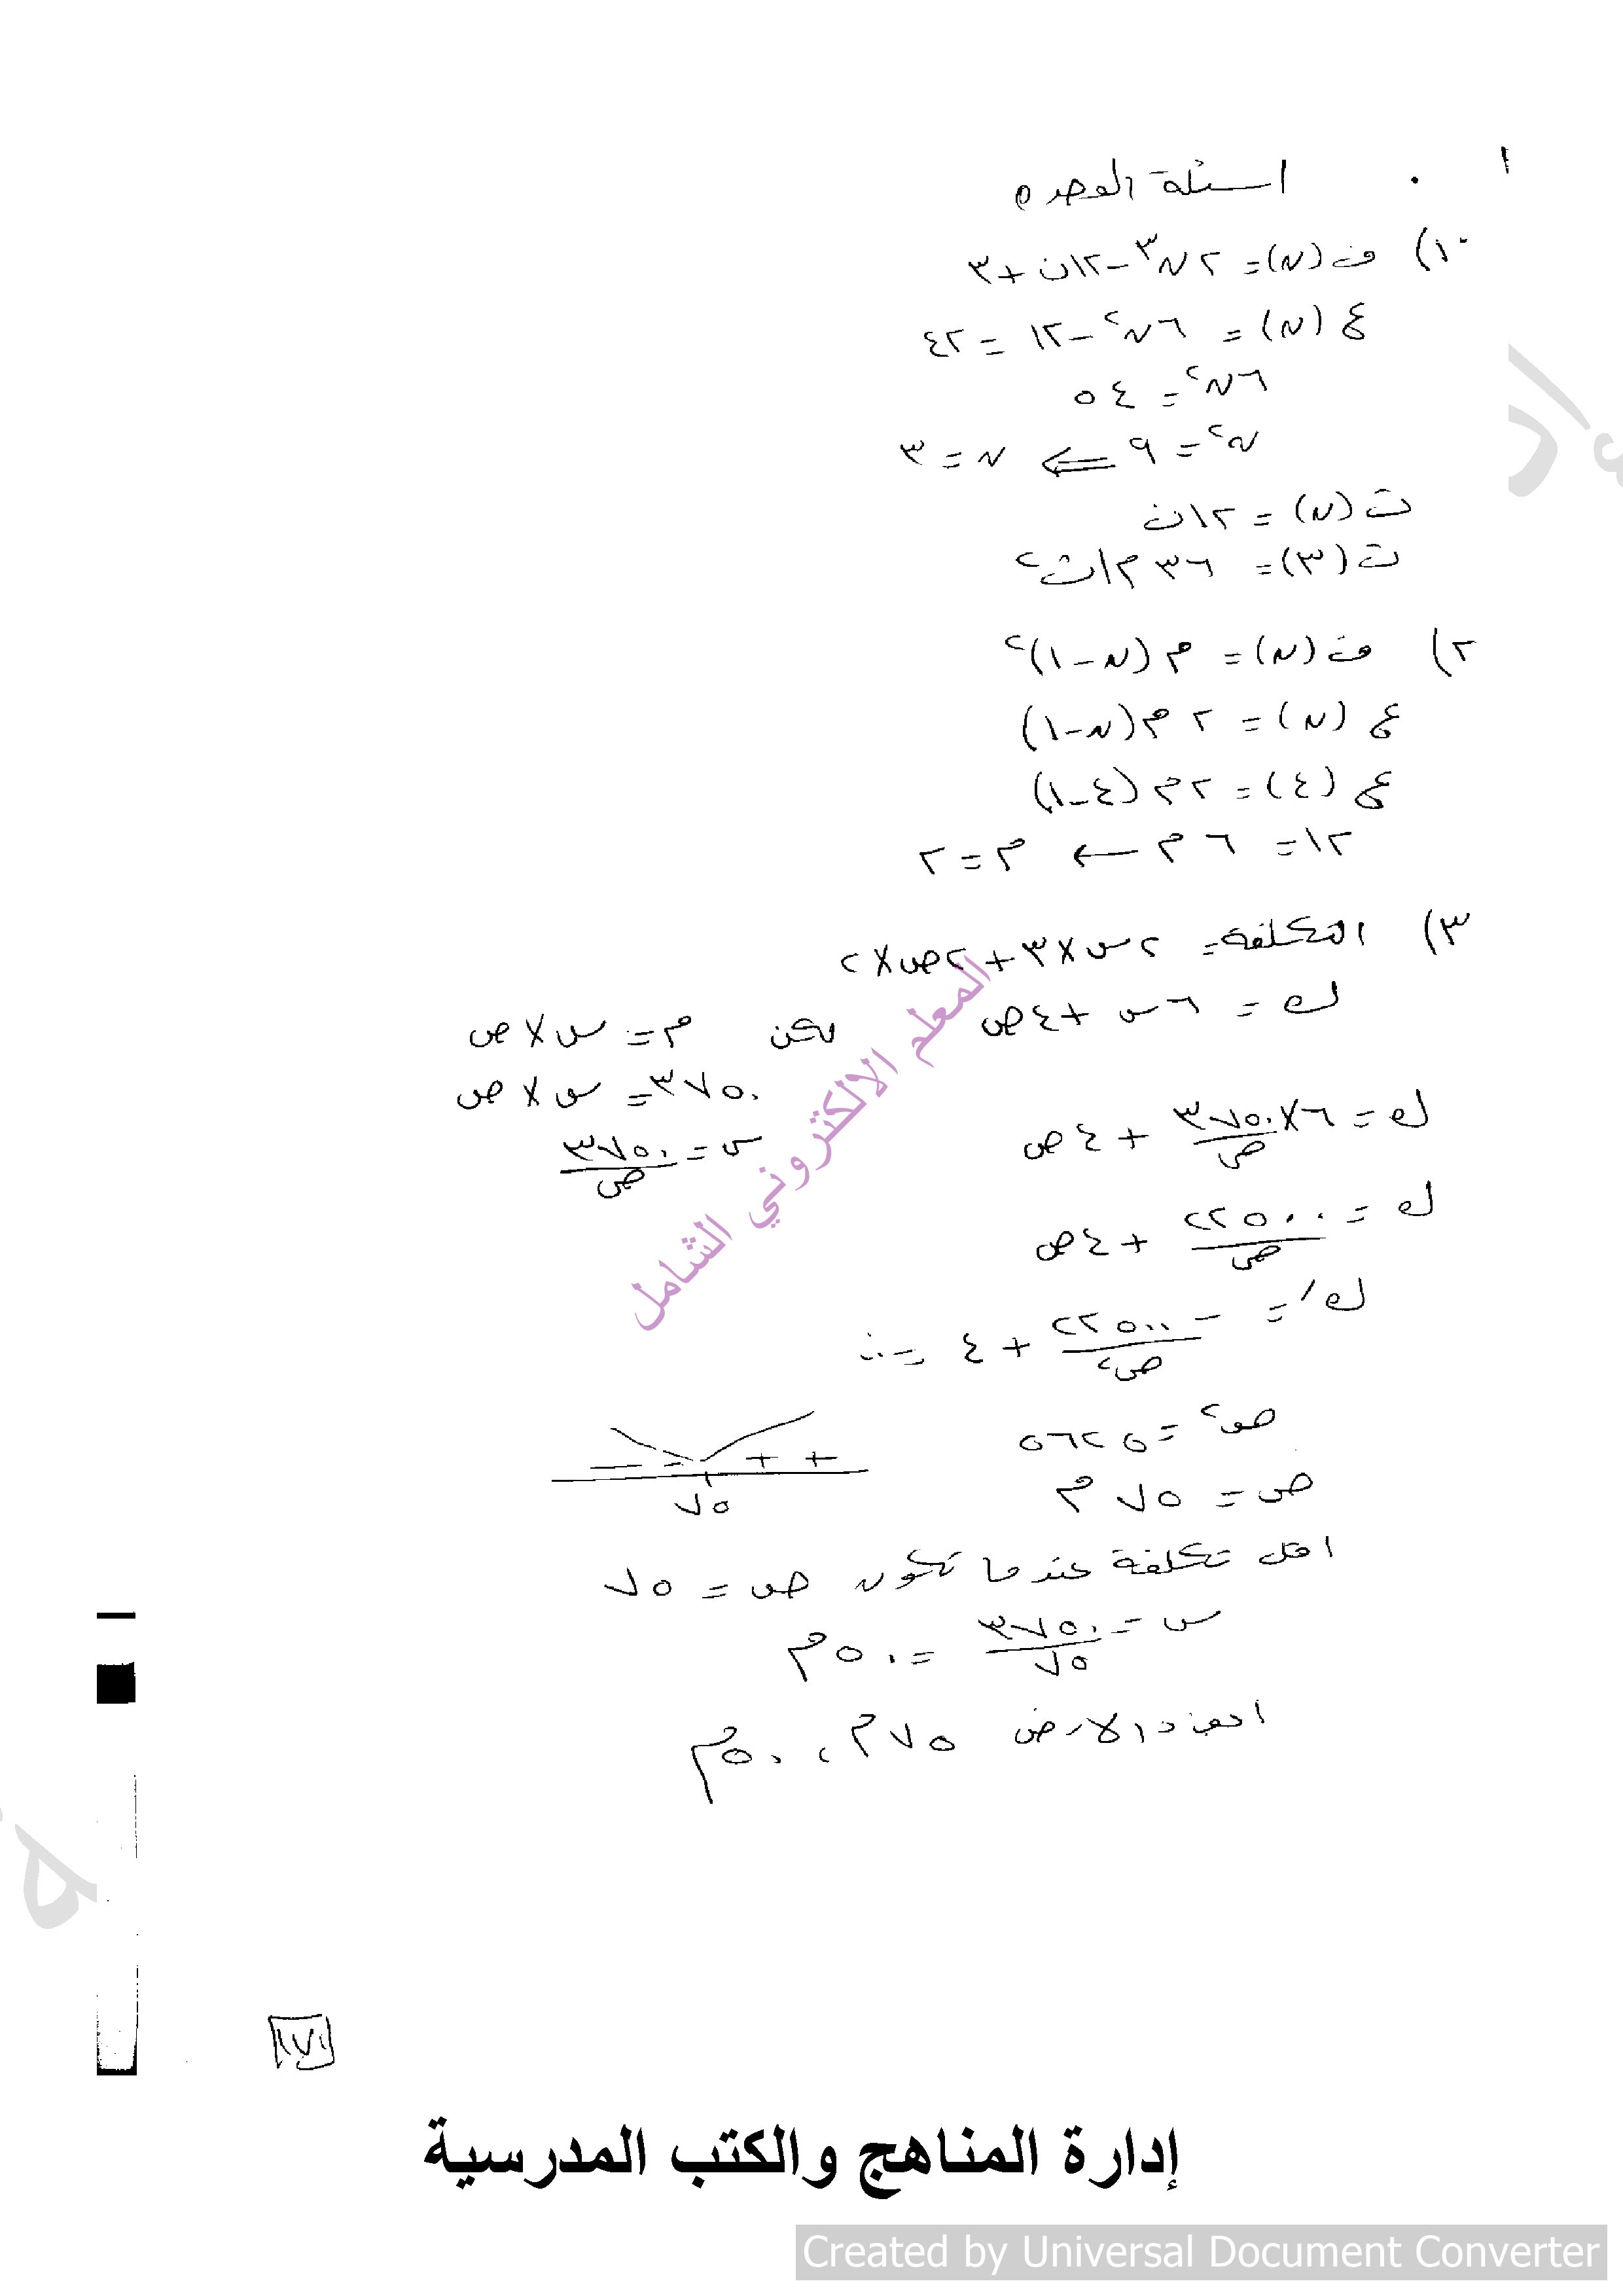 اسئلة الوحدة
١) ف(ن) = ٢ن³ - ١٢ن + ٣
ع(ن) = ٦ن² - ١٢ = ٤٢
٦ن² = ٥٤
ن² = ٩ ⇐ ن = ٣
ت(ن) = ١٢ن
ت(٣) = ٣٦ م/ث²
٢) ف(ن) = م(ن - ١)²
ع(ن) = ٢م(ن - ١)
ع(٤) = ٢م(٤ - ١)
١٢ = ٦م ← م = ٢
٣) التكلفة = ٢س×٣ + ٢ص×٢
ك = ٦س + ٤ص لكن م = س×ص
٣٧٥٠ = س×ص
ك = ٦×٣٧٥٠/ص + ٤ص
س = ٣٧٥٠/ص
ك = ٢٢٥٠٠/ص + ٤ص
ك/ = -٢٢٥٠٠/ص² + ٤ = ٠
ص² = ٥٦٢٥
- - + +
ص = ٧٥ م
٧٥
اقل تكلفة عندما تكون ص = ٧٥
س = ٣٧٥٠/٧٥ = ٥٠ م
ابعاد الارض ٧٥ م ، ٥٠ م
المعلم الالكتروني الشامل
إدارة المناهج والكتب المدرسية
Created by Universal Document Converter